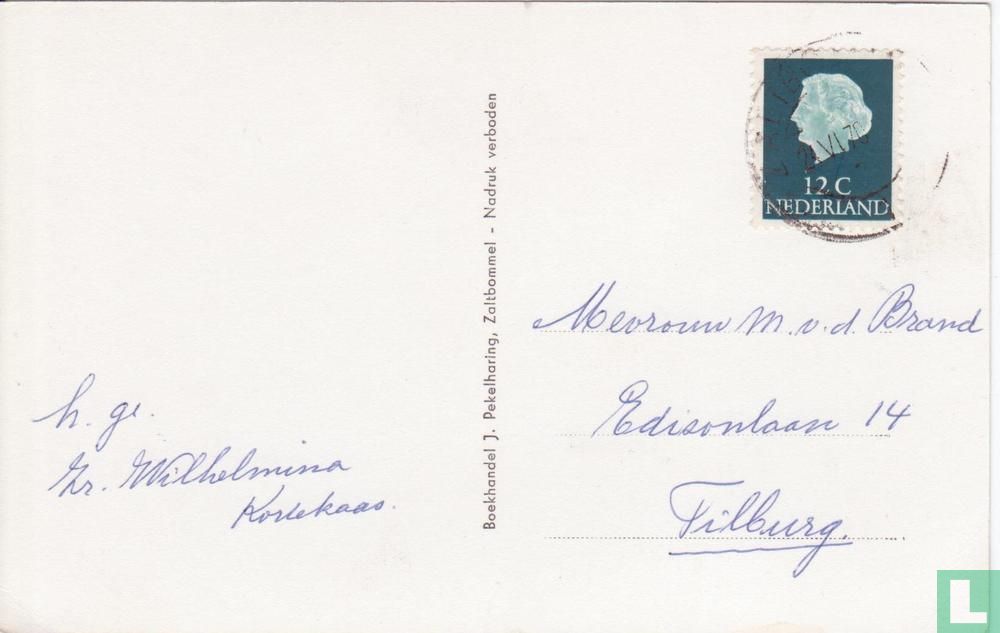 h. ge.
Zr. Wilhelmina
Kortekaas.
Boekhandel J. Pekelharing, Zaltbommel - Nadruk verboden
12 C
NEDERLAND
Mevrouw M. v. d. Brand
Edisonlaan 14
Tilburg.
L